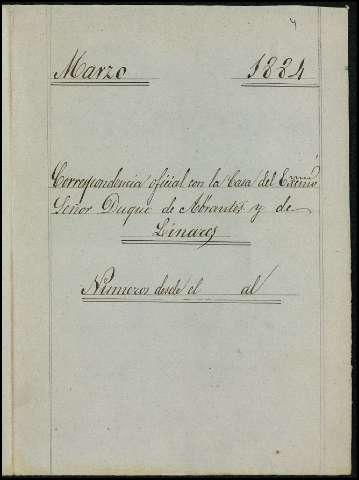 4
Marzo 1884
Correspondencia oficial con la Casa del Excmo
Señor Duque de Abrantes y de
Linares
Números desde el al